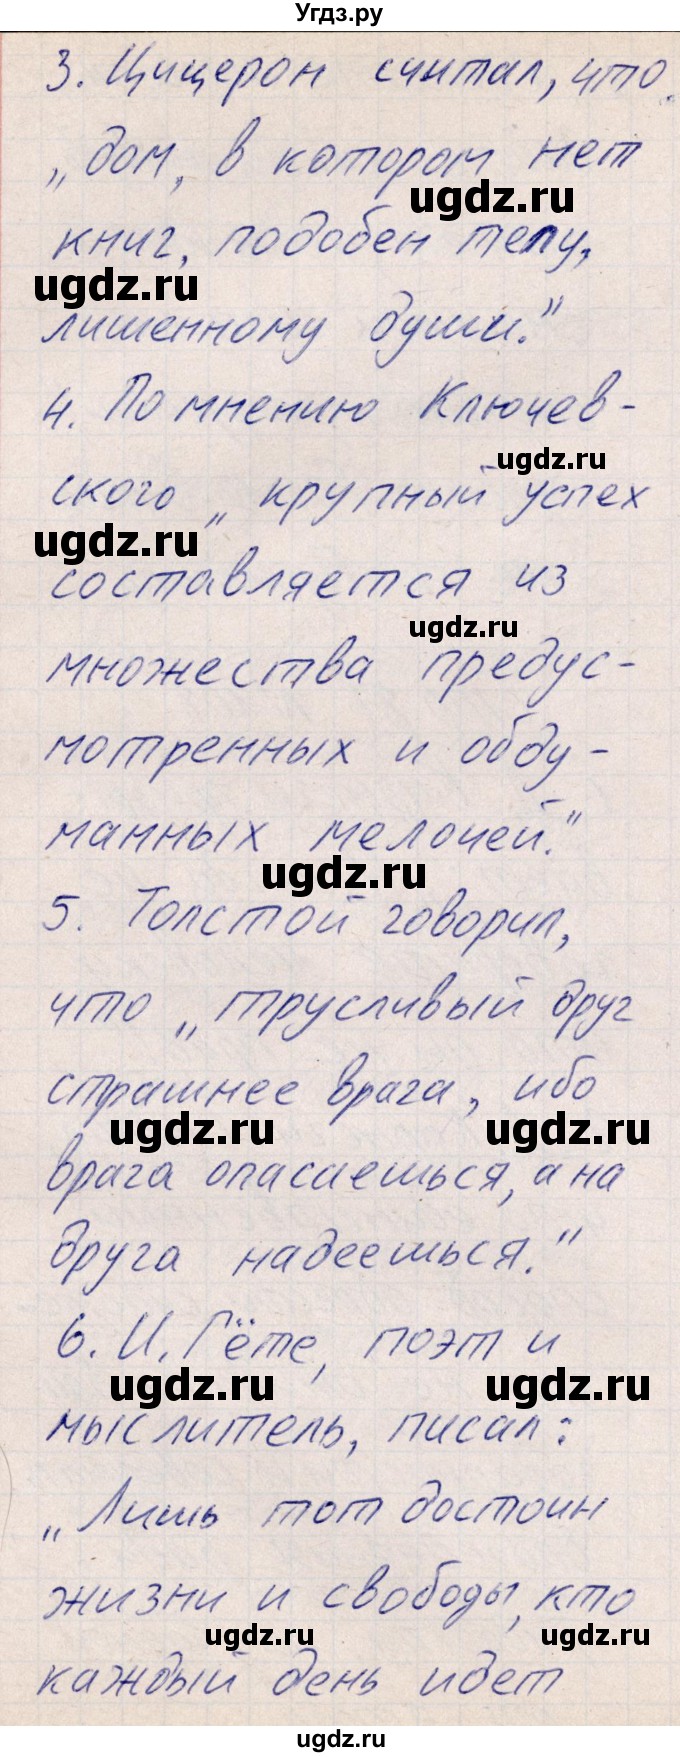 Угдз.ру
3. Цицерон считал, что
„дом, в котором нет
ugdz.ru
книг, подобен телу,
ugdz.ru
лишенному души."
4. По мнению Ключев-
ugdz.ru
ского „крупный успех
ugdz.ru
составляется из
ugdz.ru
множества предус-
мотренных и обду-
манных мелочей."
ugdz.ru
5. Толстой говорил,
что „трусливый друг
страшнее врага, ибо
ugdz.ru ugdz.ru
врага опасаешься, а на
друга надеешься."
6. И. Гёте, поэт и
ugdz.ru ugdz.ru
мыслитель, писал:
„Лишь тот достоин
жизни и свободы, кто
ugdz.ru ugdz.ru
каждый день идет
ugdz.ru